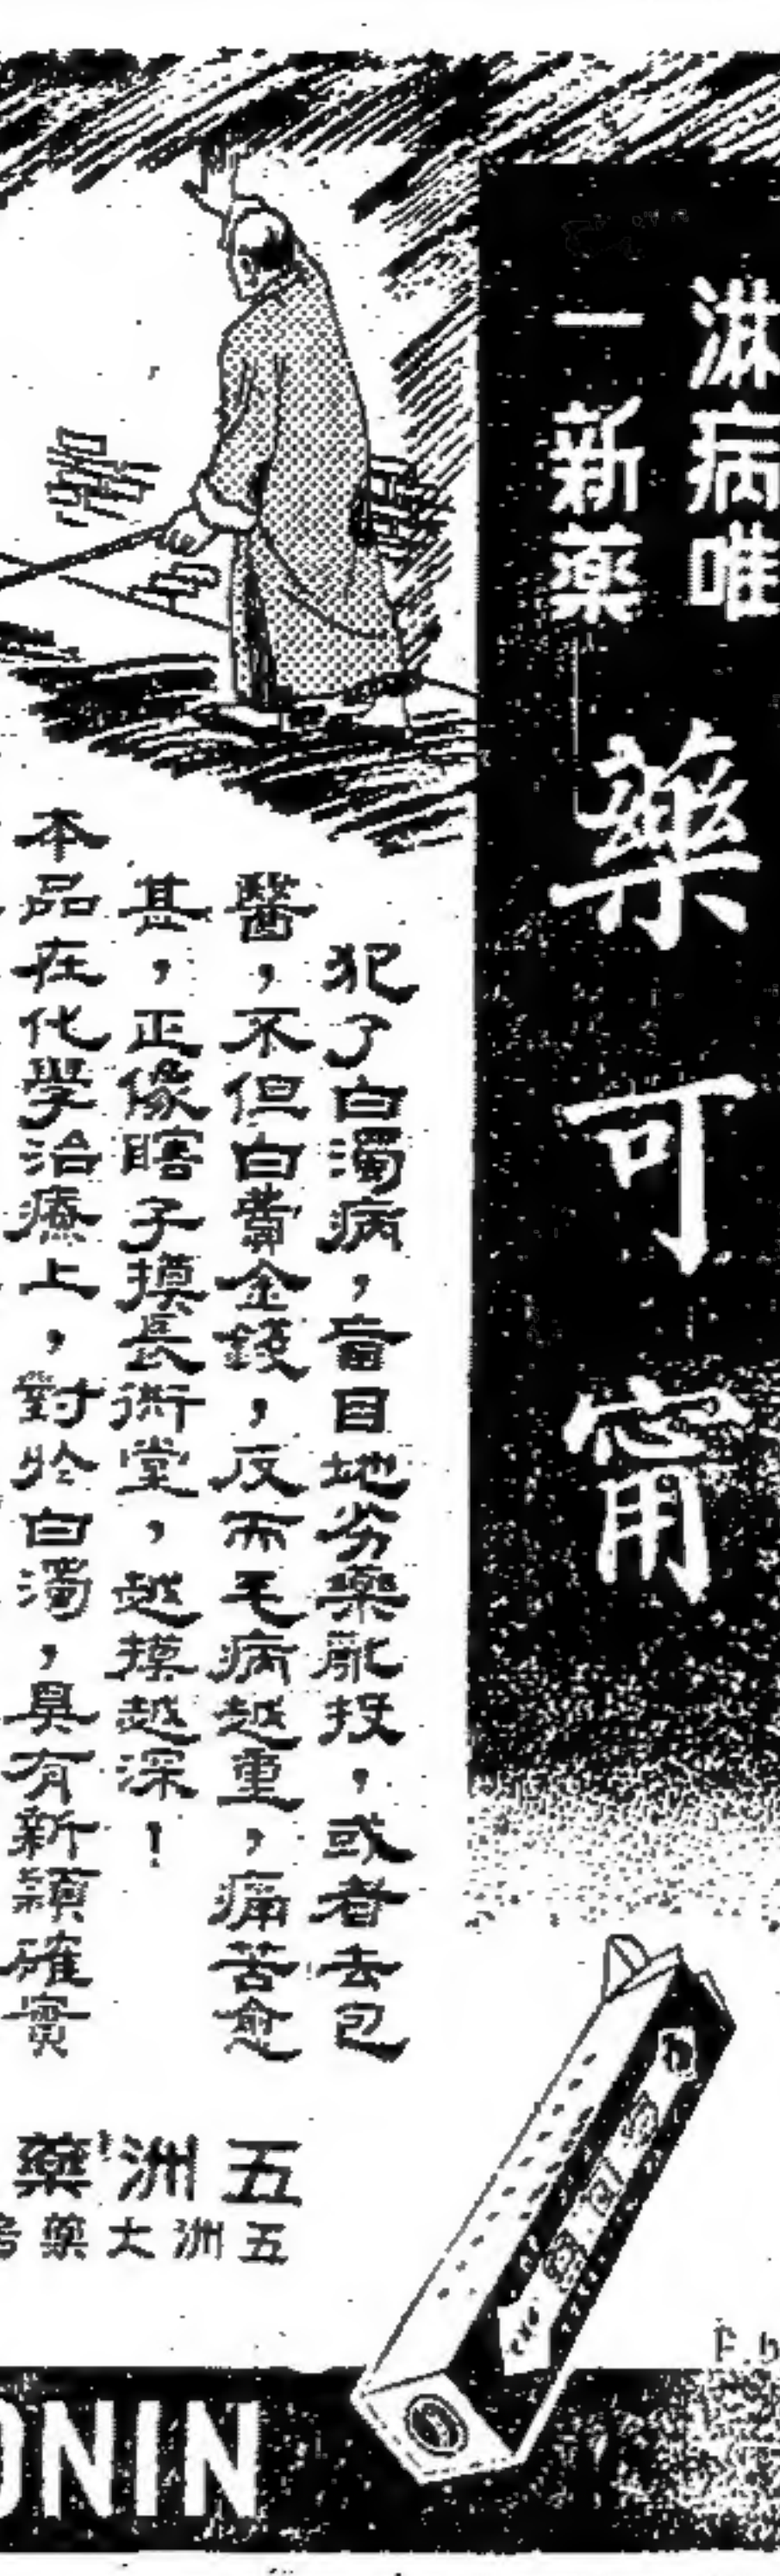 淋病唯
一新藥
藥可甯
犯了白濁病，盲目地劣藥亂投，或者去包
醫，不但白費金錢，反而毛病越重，痛苦愈
甚，正像瞎子摸長衖堂，越摸越深！
本品在化學治療上，對於白濁，具有新穎確實
五洲藥
五洲大藥房
ONIN